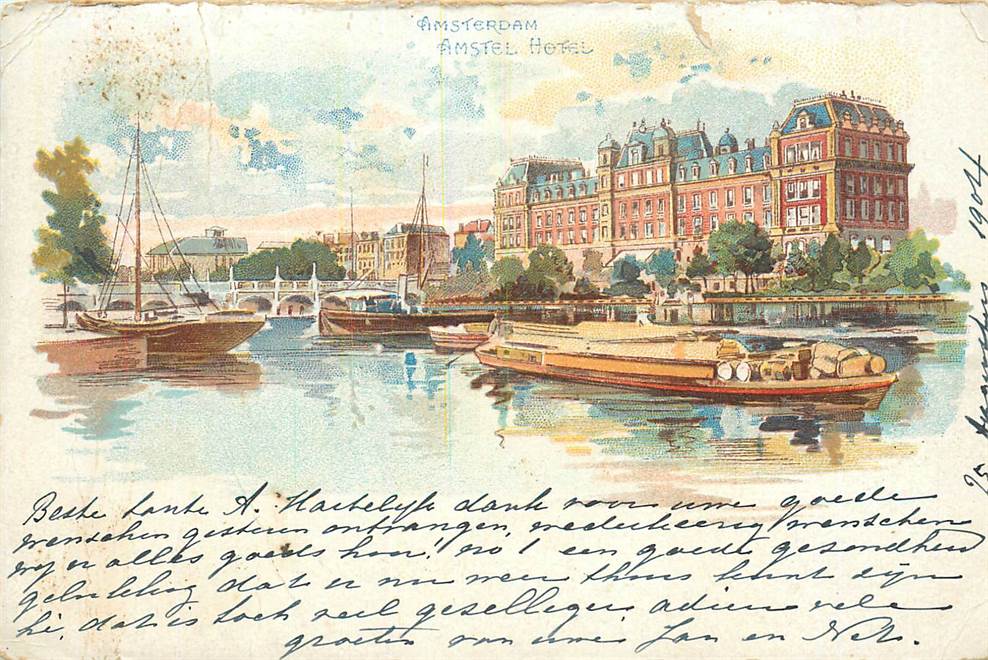 AMSTERDAM
AMSTEL HOTEL
Beste tante A. Hartelijk dank voor uwe goede
wenschen gisteren ontvangen, wederkeerig wenschen
wij er alles goeds hoor! no 1 een goede gezondheid
gelukkig dat er nu weer thuis kunt zijn
hè, dat is toch veel gezelliger adieu vele
groeten van uwe Jan en Net.
1904